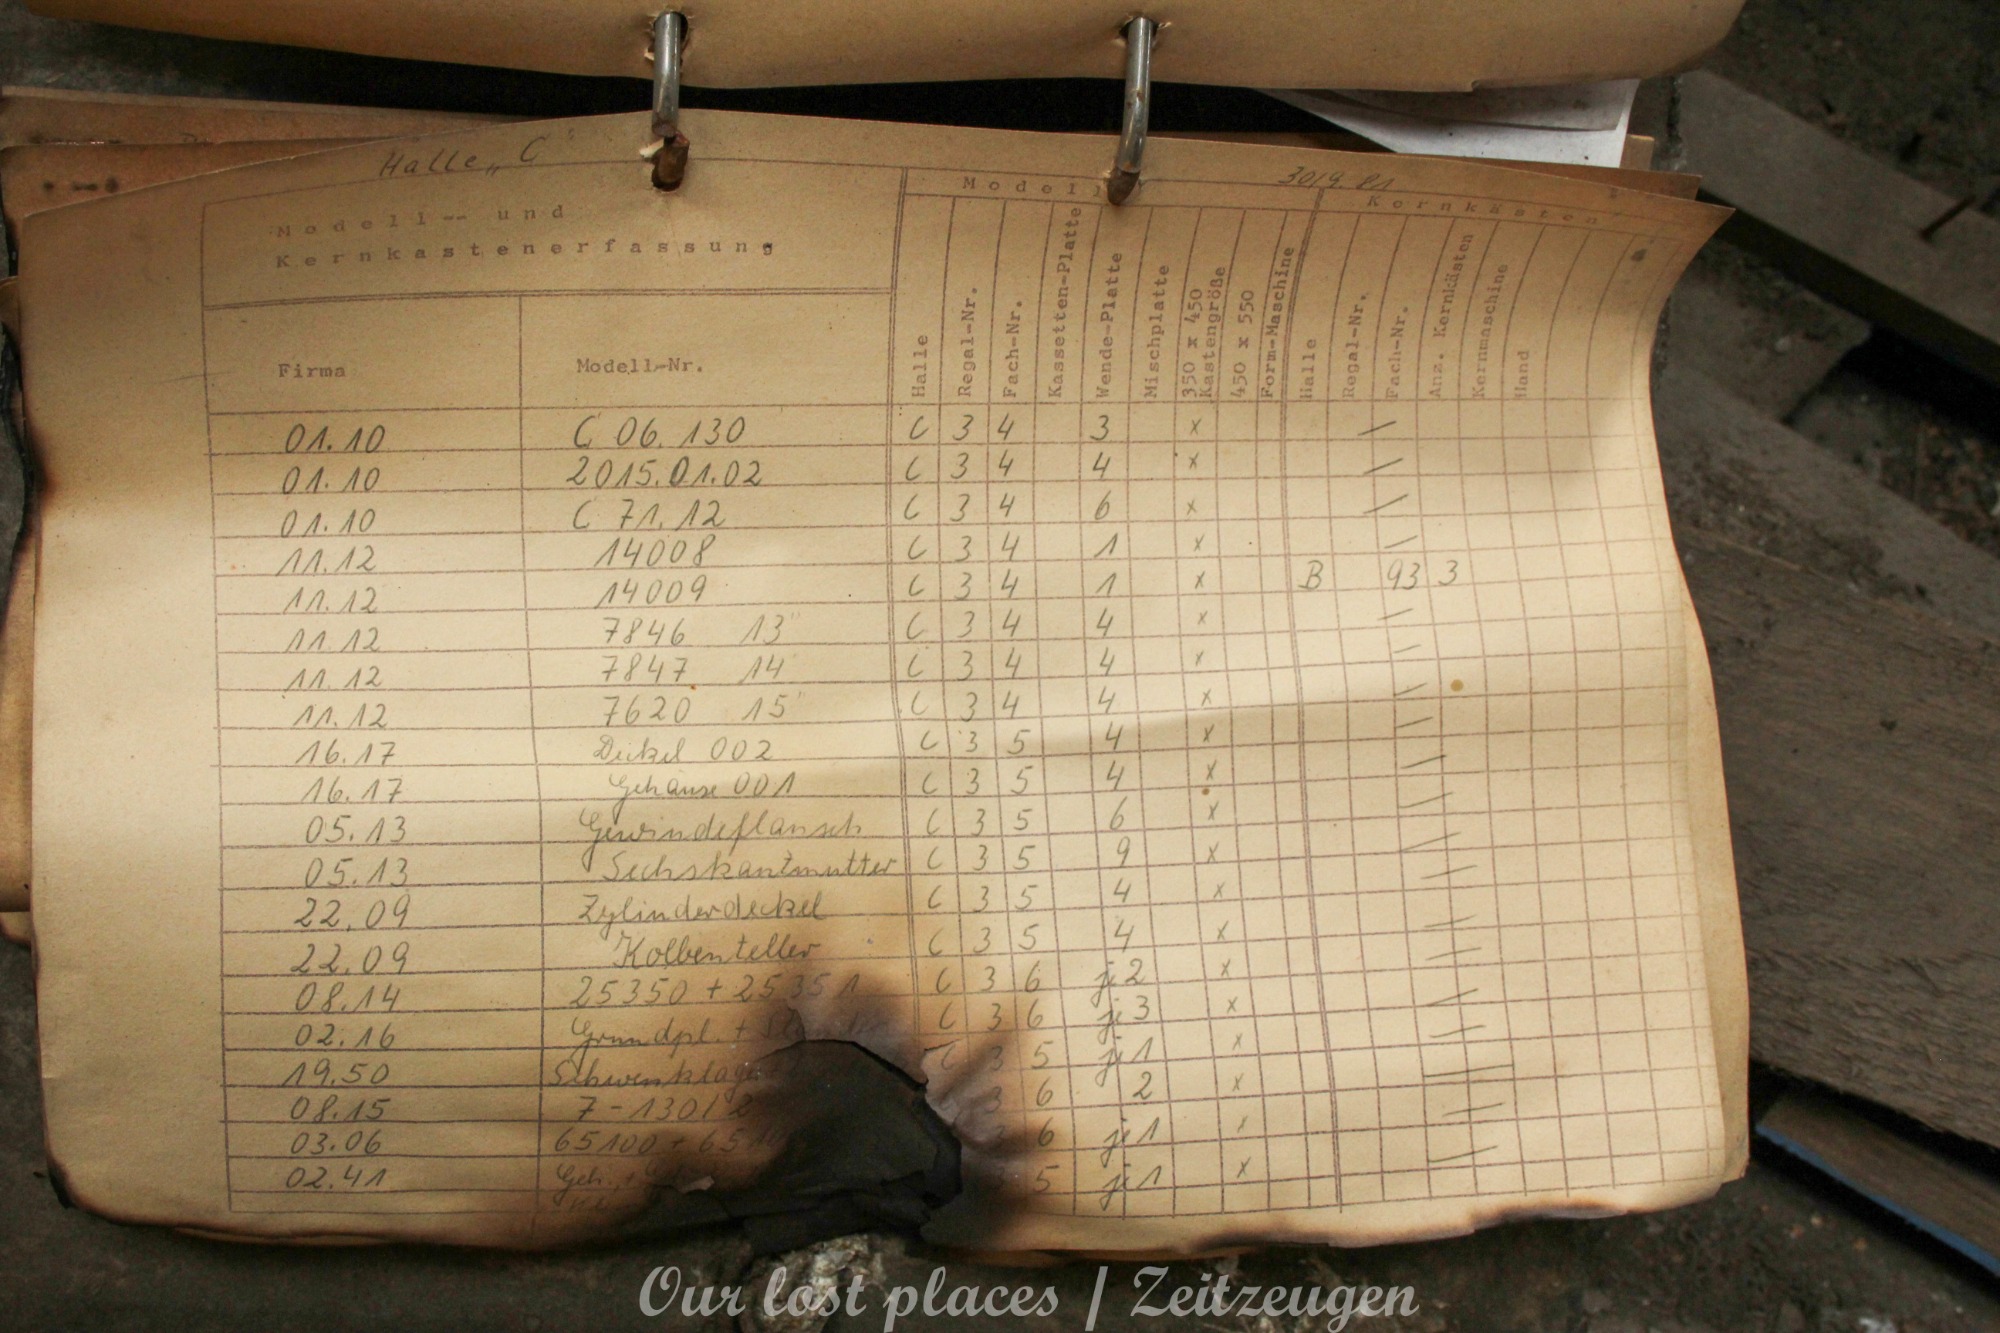 Halle „C"
Modell
Kernkästen
Modell-- und
Kernkastenerfassung
Firma Modell-Nr. Halle Regal-Nr. Fach-Nr. Kassetten-Platte Wende-Platte Mischplatte 350 x 450 Kastengröße 450 x 550 Form-Maschine Halle Regal-Nr. Fach-Nr. Anz. Kernkästen Kernmaschine Hand
01.10 C 06.130 C 3 4 3 x –
01.10 2015.01.02 C 3 4 4 x –
01.10 C 71.12 C 3 4 6 x –
11.12 14008 C 3 4 1 x –
11.12 14009 C 3 4 1 x B 93 3
11.12 7846 13" C 3 4 4 x –
11.12 7847 14 C 3 4 4 x –
11.12 7620 15" C 3 4 4 x –
16.17 Deckel 002 C 3 5 4 x –
16.17 Gehäuse 001 C 3 5 4 x –
05.13 Gewindeflansch C 3 5 6 x –
05.13 Sechskantmutter C 3 5 9 x –
22.09 Zylinderdeckel C 3 5 4 x –
22.09 Kolbenteller C 3 5 4 x –
08.14 25350 + 25351 C 3 6 je 2 x –
02.16 Grundpl. + C 3 6 je 3 x –
19.50 C 3 5 je 1 x –
08.15 3 6 2 x –
03.06 65100 + 3 6 je 1 x –
02.41 Geh., 3 5 je 1 x –
Our lost places / Zeitzeugen